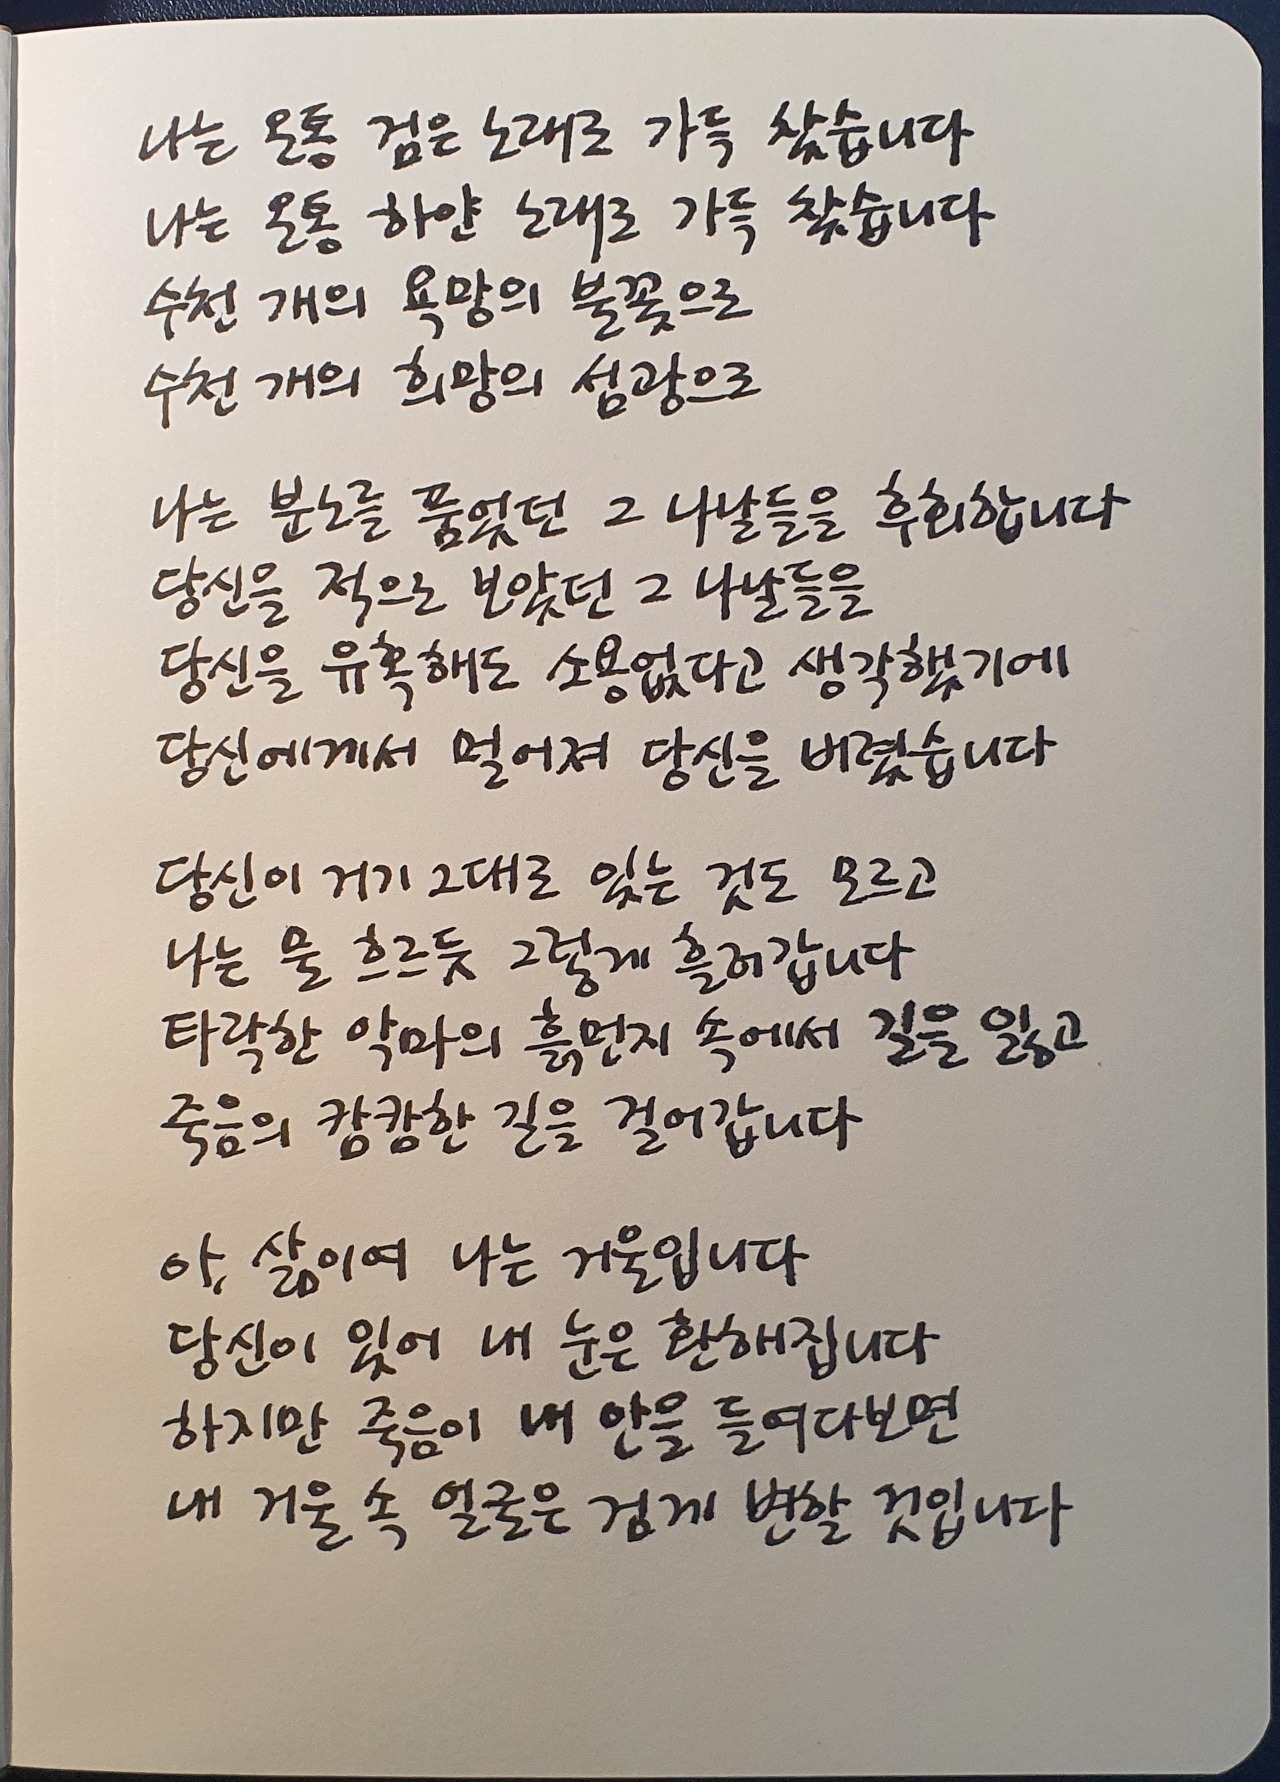 나는 온통 검은 노래로 가득 찼습니다
나는 온통 하얀 노래로 가득 찼습니다
수천 개의 욕망의 불꽃으로
수천 개의 희망의 섬광으로
나는 분노를 품었던 그 나날들을 후회합니다
당신을 적으로 보았던 그 나날들을
당신을 유혹해도 소용없다고 생각했기에
당신에게서 멀어져 당신을 버렸습니다
당신이 거기 그대로 있는 것도 모르고
나는 물 흐르듯 그렇게 흘러갑니다
타락한 악마의 흙먼지 속에서 길을 잃고
죽음의 캄캄한 길을 걸어갑니다
아, 삶이여 나는 거울입니다
당신이 있어 내 눈은 환해집니다
하지만 죽음이 내 안을 들여다보면
내 거울 속 얼굴은 검게 변할 것입니다